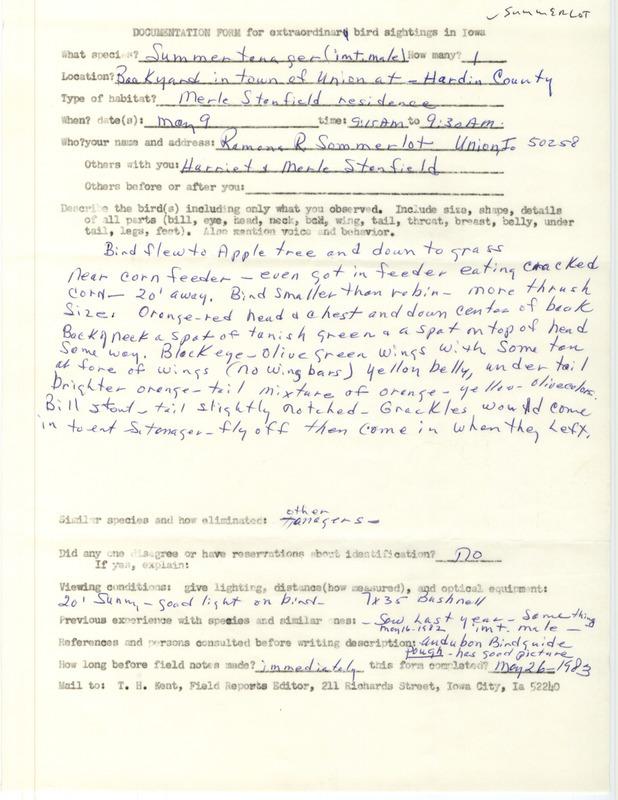 ✓SUMMERLOT
DOCUMENTATION FORM for extraordinary bird sightings in Iowa
What species? Summer tanager (imt. male) How many? 1
Location? Backyard in town of Union at - Hardin County
Type of habitat? Merle Stenfield residence
When? date(s): May 9 time: 9:15 AM to 9:30 AM.
Who? your name and address: Ramona R Sommerlot Union Io 50258
Others with you: Harriet & Merle Stenfield
Others before or after you:
Describe the bird(s) including only what you observed. Include size, shape, details
of all parts (bill, eye, head, neck, back, wing, tail, throat, breast, belly, under
tail, legs, feet). Also mention voice and behavior.
Bird flew to Apple tree and down to grass
near corn feeder - even got in feeder eating cracked
corn - 20' away. Bird smaller than robin - more thrush
size. Orange-red head & chest and down center of back
Back of neck a spot of tanish green & a spot on top of head
same way. Black eye - Olive green wings with some tan
at fore of wings (no wing bars) yellow belly, under tail
brighter orange - tail mixture of orange - yellow - olive colors.
Bill stout - tail slightly notched - Grackles would come
in to eat S. tanager - fly off then come in when they left.
Similar species and how eliminated: other
tanagers -
Did any one disagree or have reservations about identification? no
If yes, explain:
Viewing conditions: give lighting, distance(how measured), and optical equipment:
20' Sunny - good light on bird - 7x35 Bushnell
Previous experience with species and similar ones: - Saw last year - same thing
May 16-1982 imt. male -
References and persons consulted before writing description: Audubon Birdguide
Pough - has good picture
How long before field notes made? immediately this form completed? May 26-1983
Mail to: T. H. Kent, Field Reports Editor, 211 Richards Street, Iowa City, Ia 52240